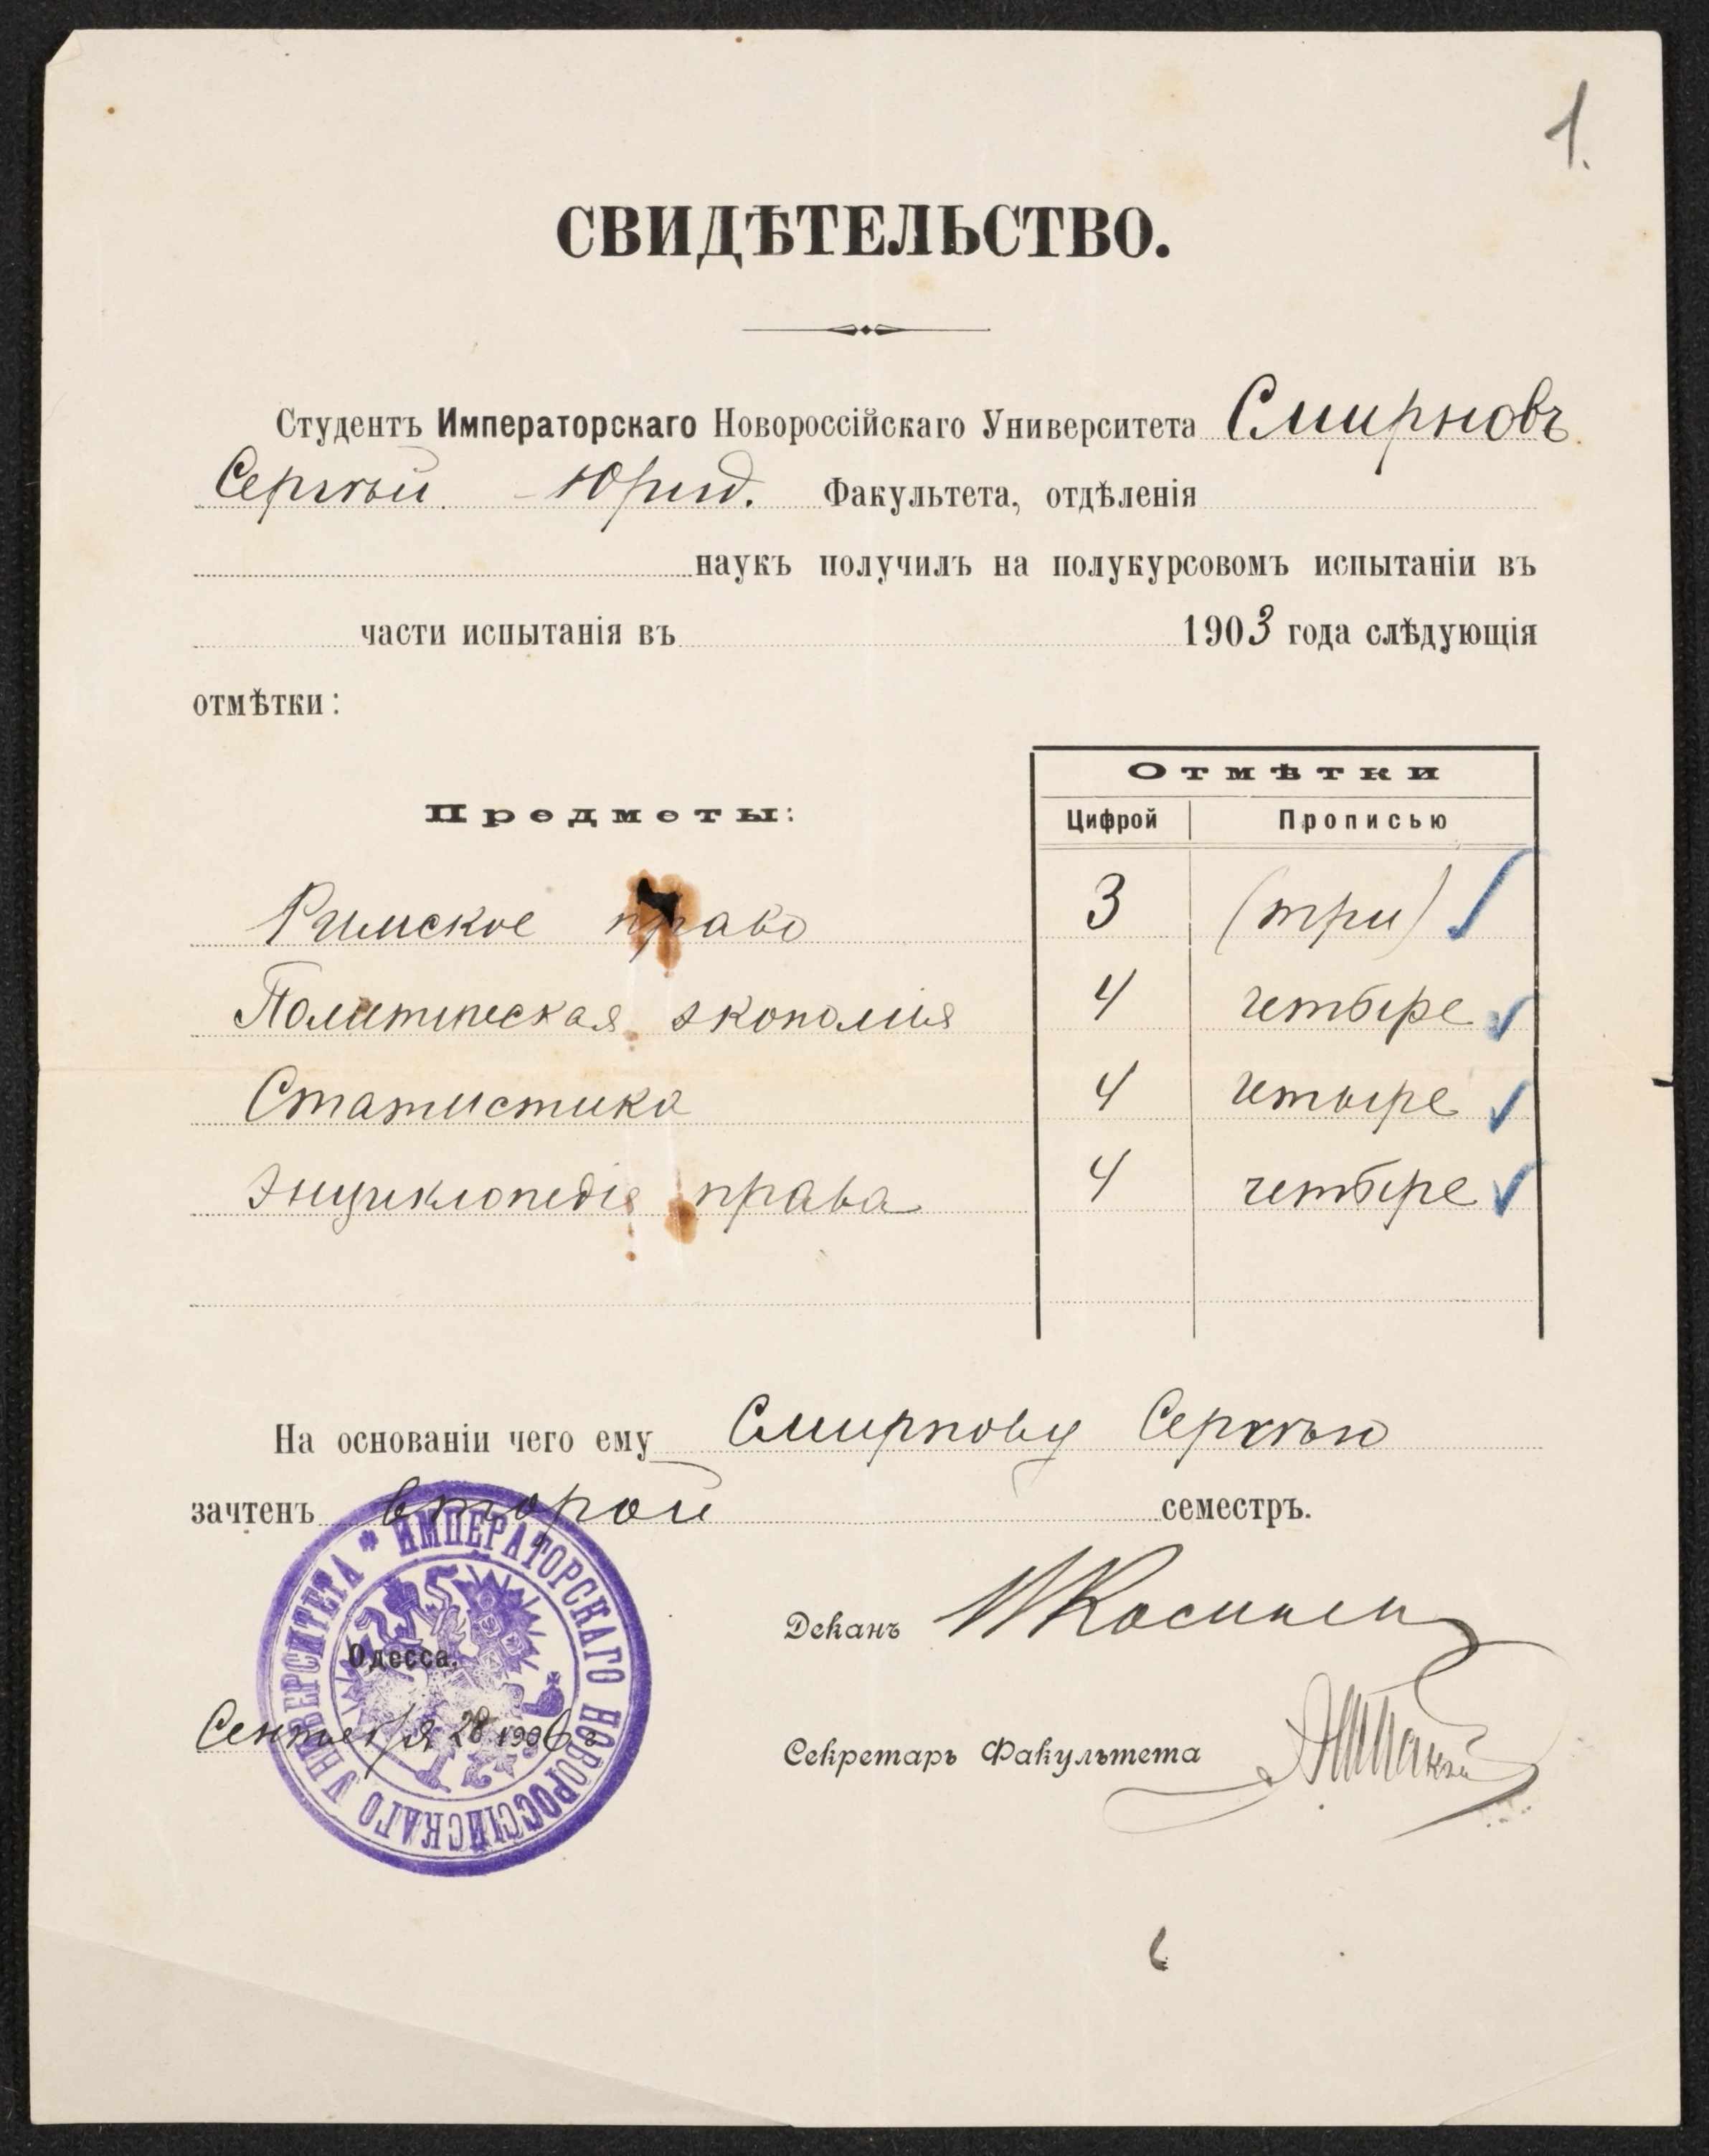 1.
СВИДѢТЕЛЬСТВО.
Студентъ Императорскаго Новороссійскаго Университета Смирновъ
Сергѣй Юрид. Факультета, отдѣленія
наукъ получилъ на полукурсовомъ испытаніи въ
части испытанія въ 1903 года слѣдующія
отмѣтки:
Предметы: Отмѣтки
Цифрой Прописью
Римское право 3 (три)
Политическая экономія 4 четыре
Статистика 4 четыре
Энциклопедія права 4 четыре
На основаніи чего ему Смирнову Сергѣю
зачтенъ второй семестръ.
ИМПЕРАТОРСКАГО НОВОРОССІЙСКАГО УНИВЕРСИТЕТА
Одесса,
Деканъ
Сентября 28 1906 г
Секретарь Факультета